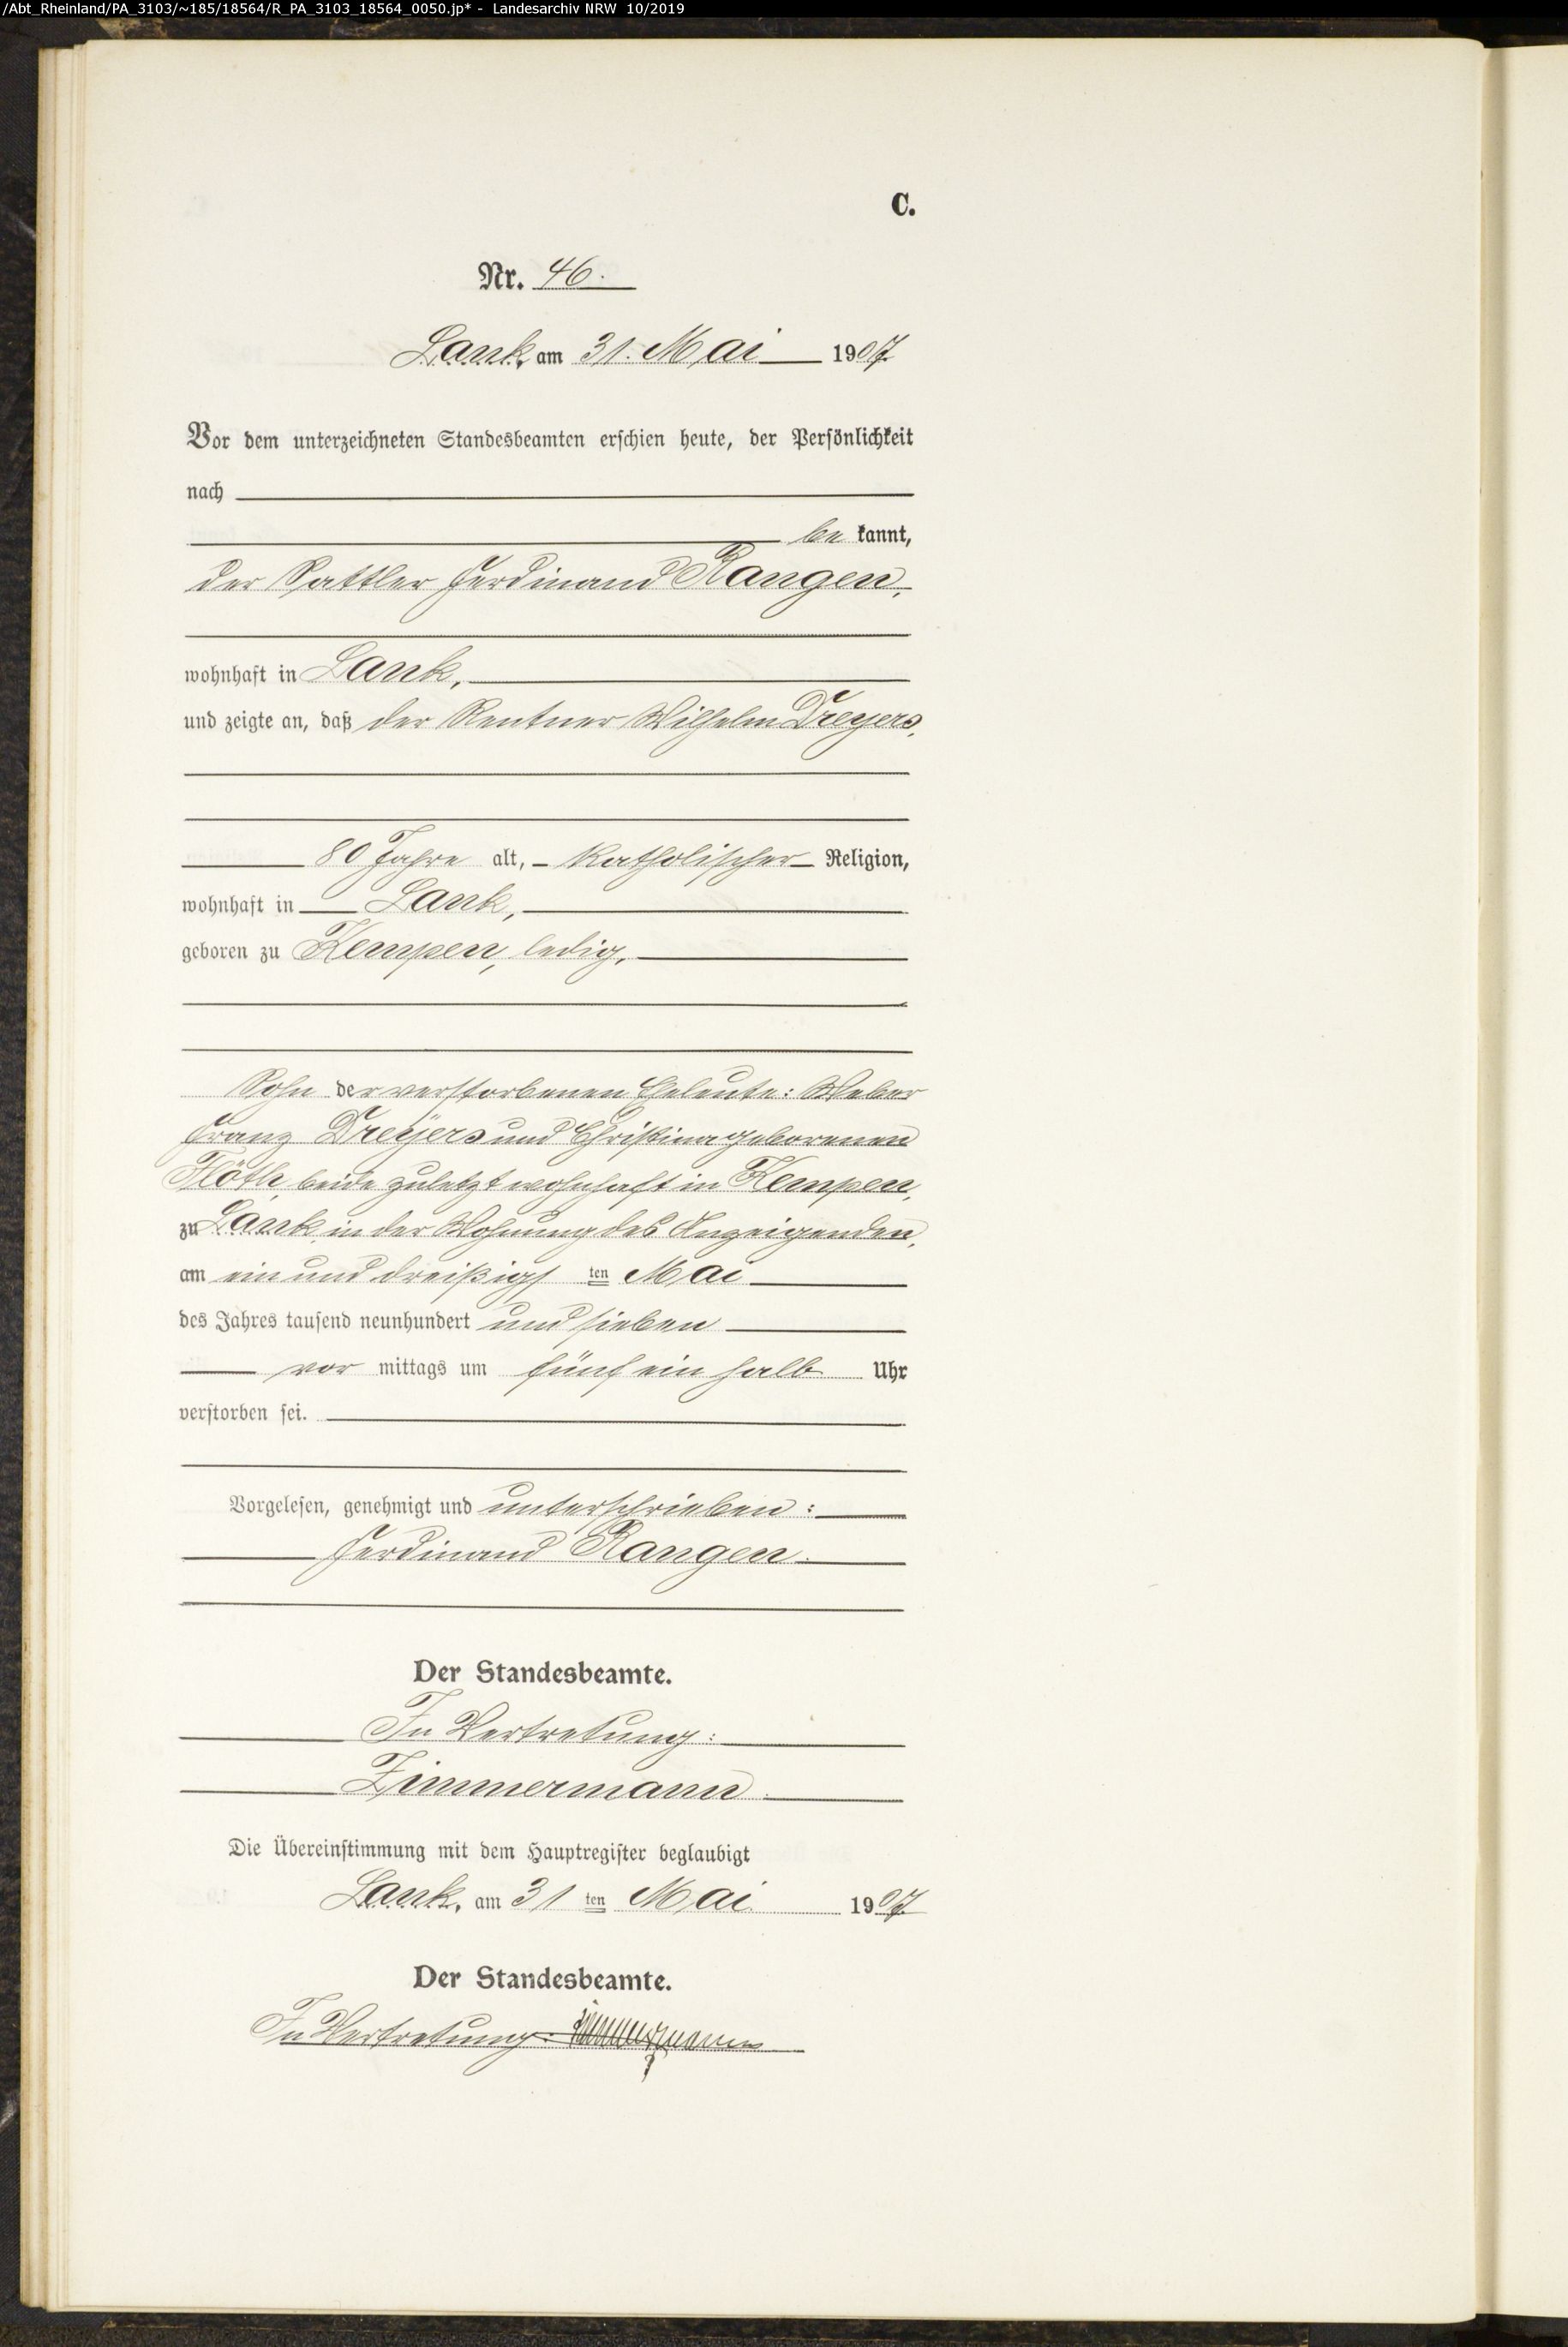 /Abt_Rheinland/PA_3103/~185/18564/R_PA_3103_18564_0050.jp* - Landesarchiv NRW 10/2019
C.
Nr. 46.
Lank, am 31. Mai 1907
Vor dem unterzeichneten Standesbeamten erschien heute, der Persönlichkeit
nach
be kannt,
der Sattler Ferdinand Rangen,
wohnhaft in Lank,
und zeigte an, daß der Rentner Wilhelm Dreyers,
80 Jahre alt, - katholischer Religion,
wohnhaft in Lank,
geboren zu Kempen, ledig,
Sohn der verstorbenen Eheleute: Weber
Franz Dreÿers und Christina geborenen
Flöth, beide zuletzt wohnhaft in Kempen,
zu Lank in der Wohnung des Anzeigenden,
am ein und dreißigs ten Mai
des Jahres tausend neunhundert und sieben
vor mittags um fünf ein halb Uhr
verstorben sei.
Vorgelesen, genehmigt und unterschrieben:
Ferdinand Rangen.
Der Standesbeamte.
In Vertretung:
Zimmermann.
Die Übereinstimmung mit dem Hauptregister beglaubigt
Lank, am 31 ten Mai 1907
Der Standesbeamte.
In Vertretung: Zimmermann